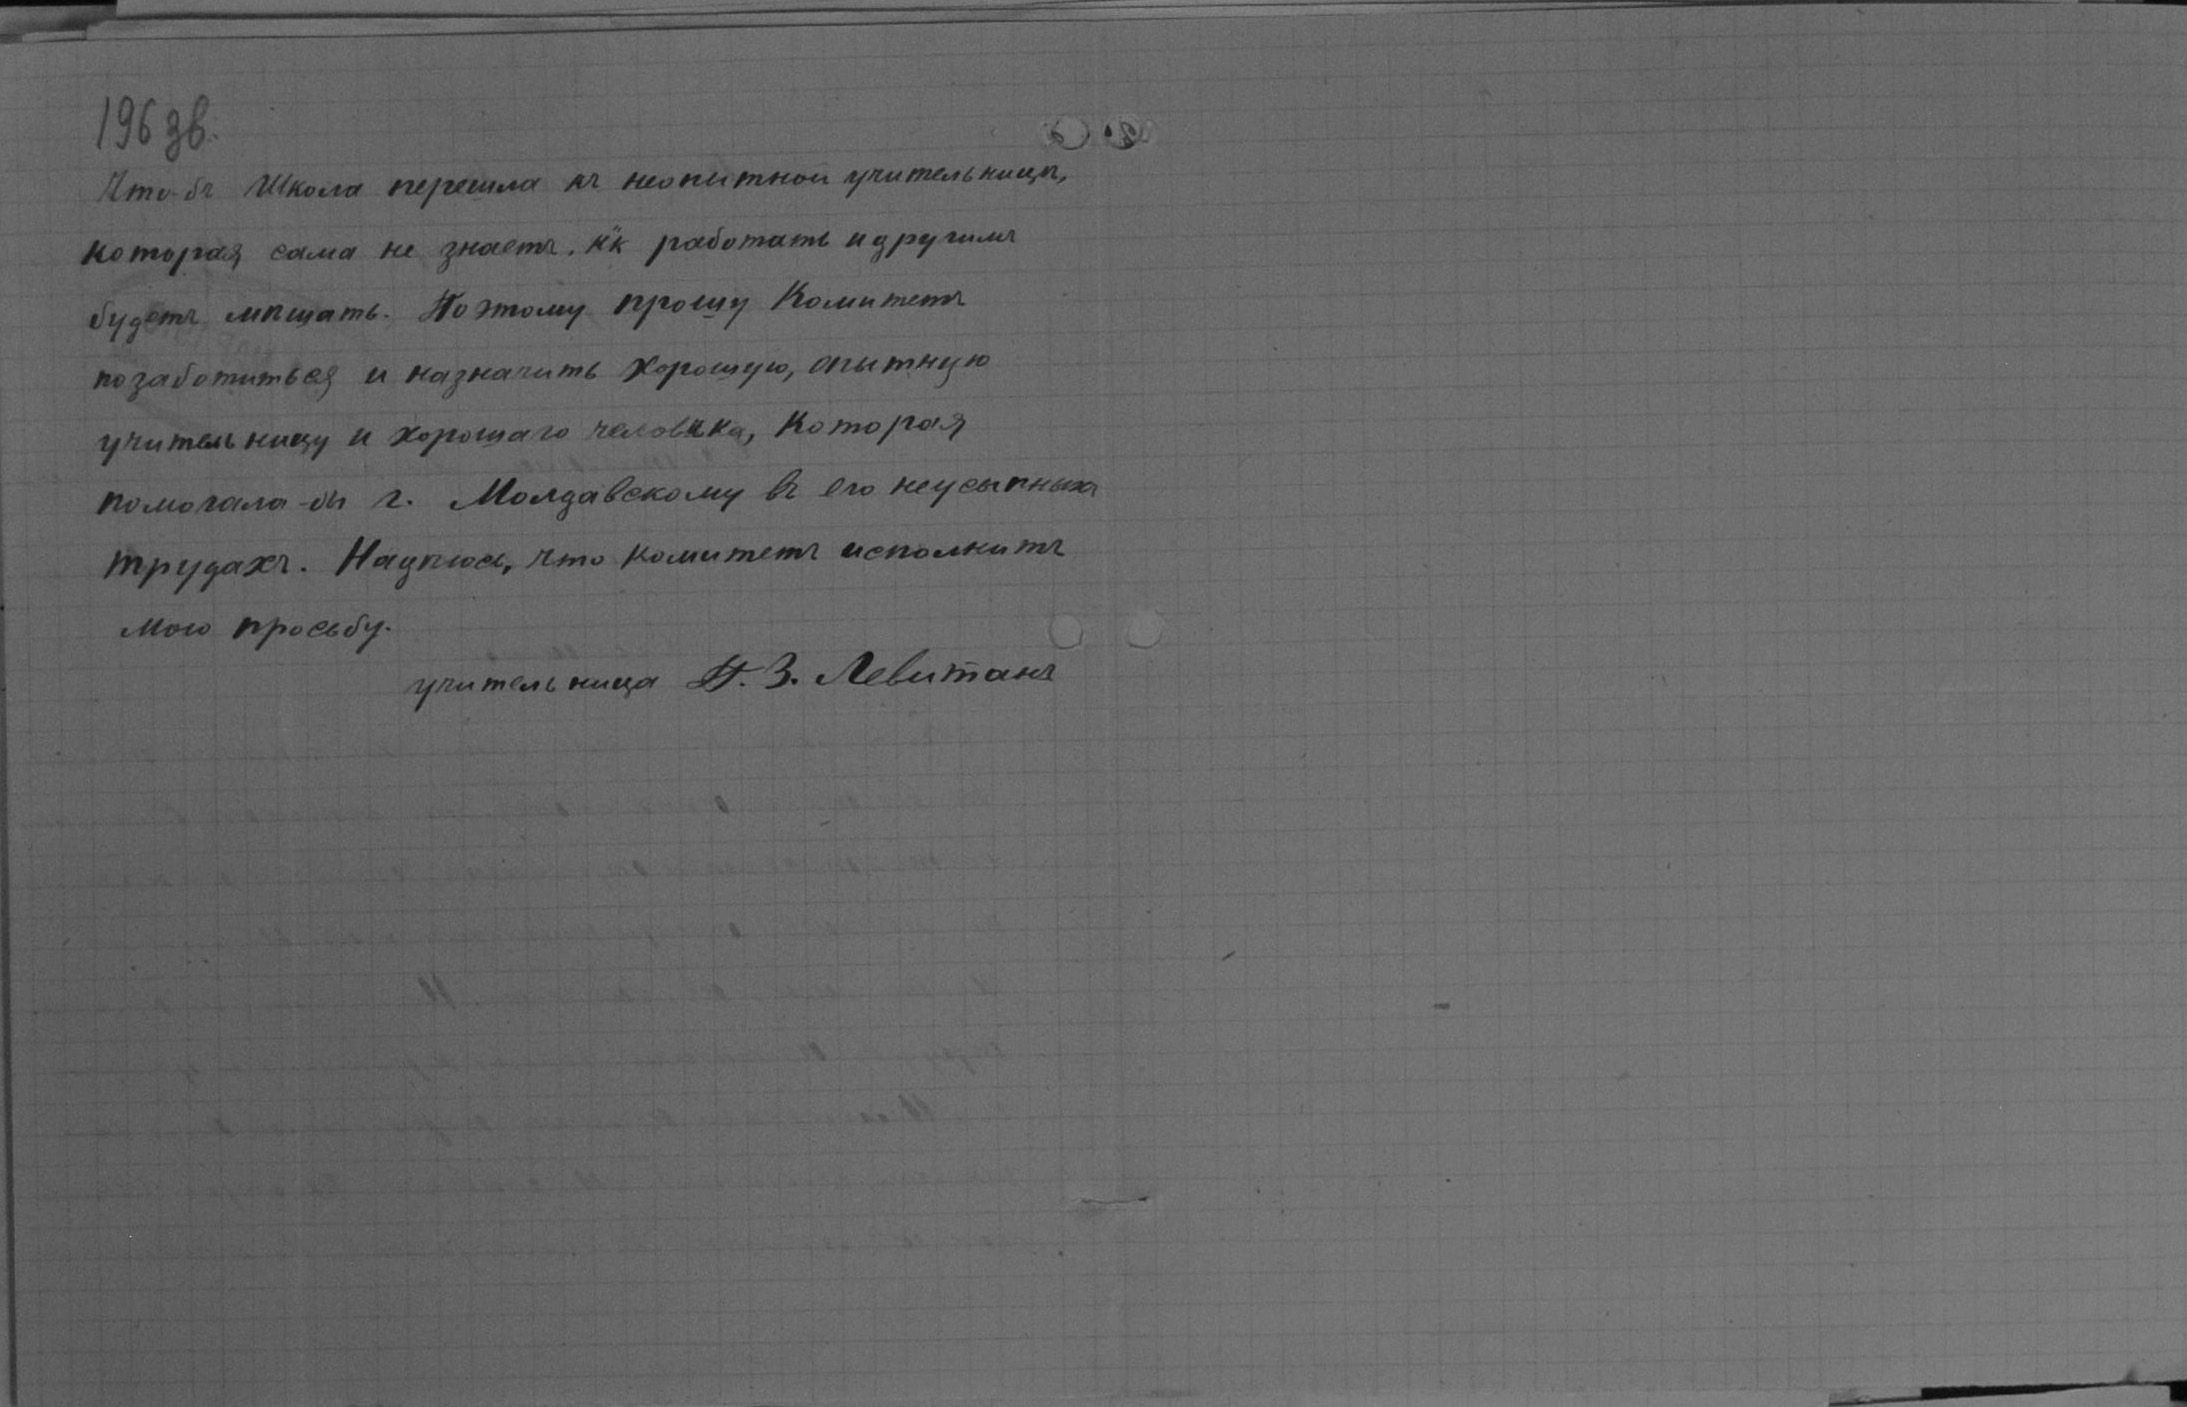 196 зв.
Что-бъ Школа перешла къ неопытной учительницѣ,
которая сама не знаетъ, к̈к работать и другимъ
будетъ мѣшать. Поэтому прошу Комитетъ
позаботиться и назначить хорошую, опытную
учительницу и хорошаго человѣка, Которая
помогала-бы г. Молдавскому въ его неусыпныхъ
трудахъ. Надѣюсь, что комитетъ исполнитъ
мою просьбу.
учительница П. З. Левитанъ